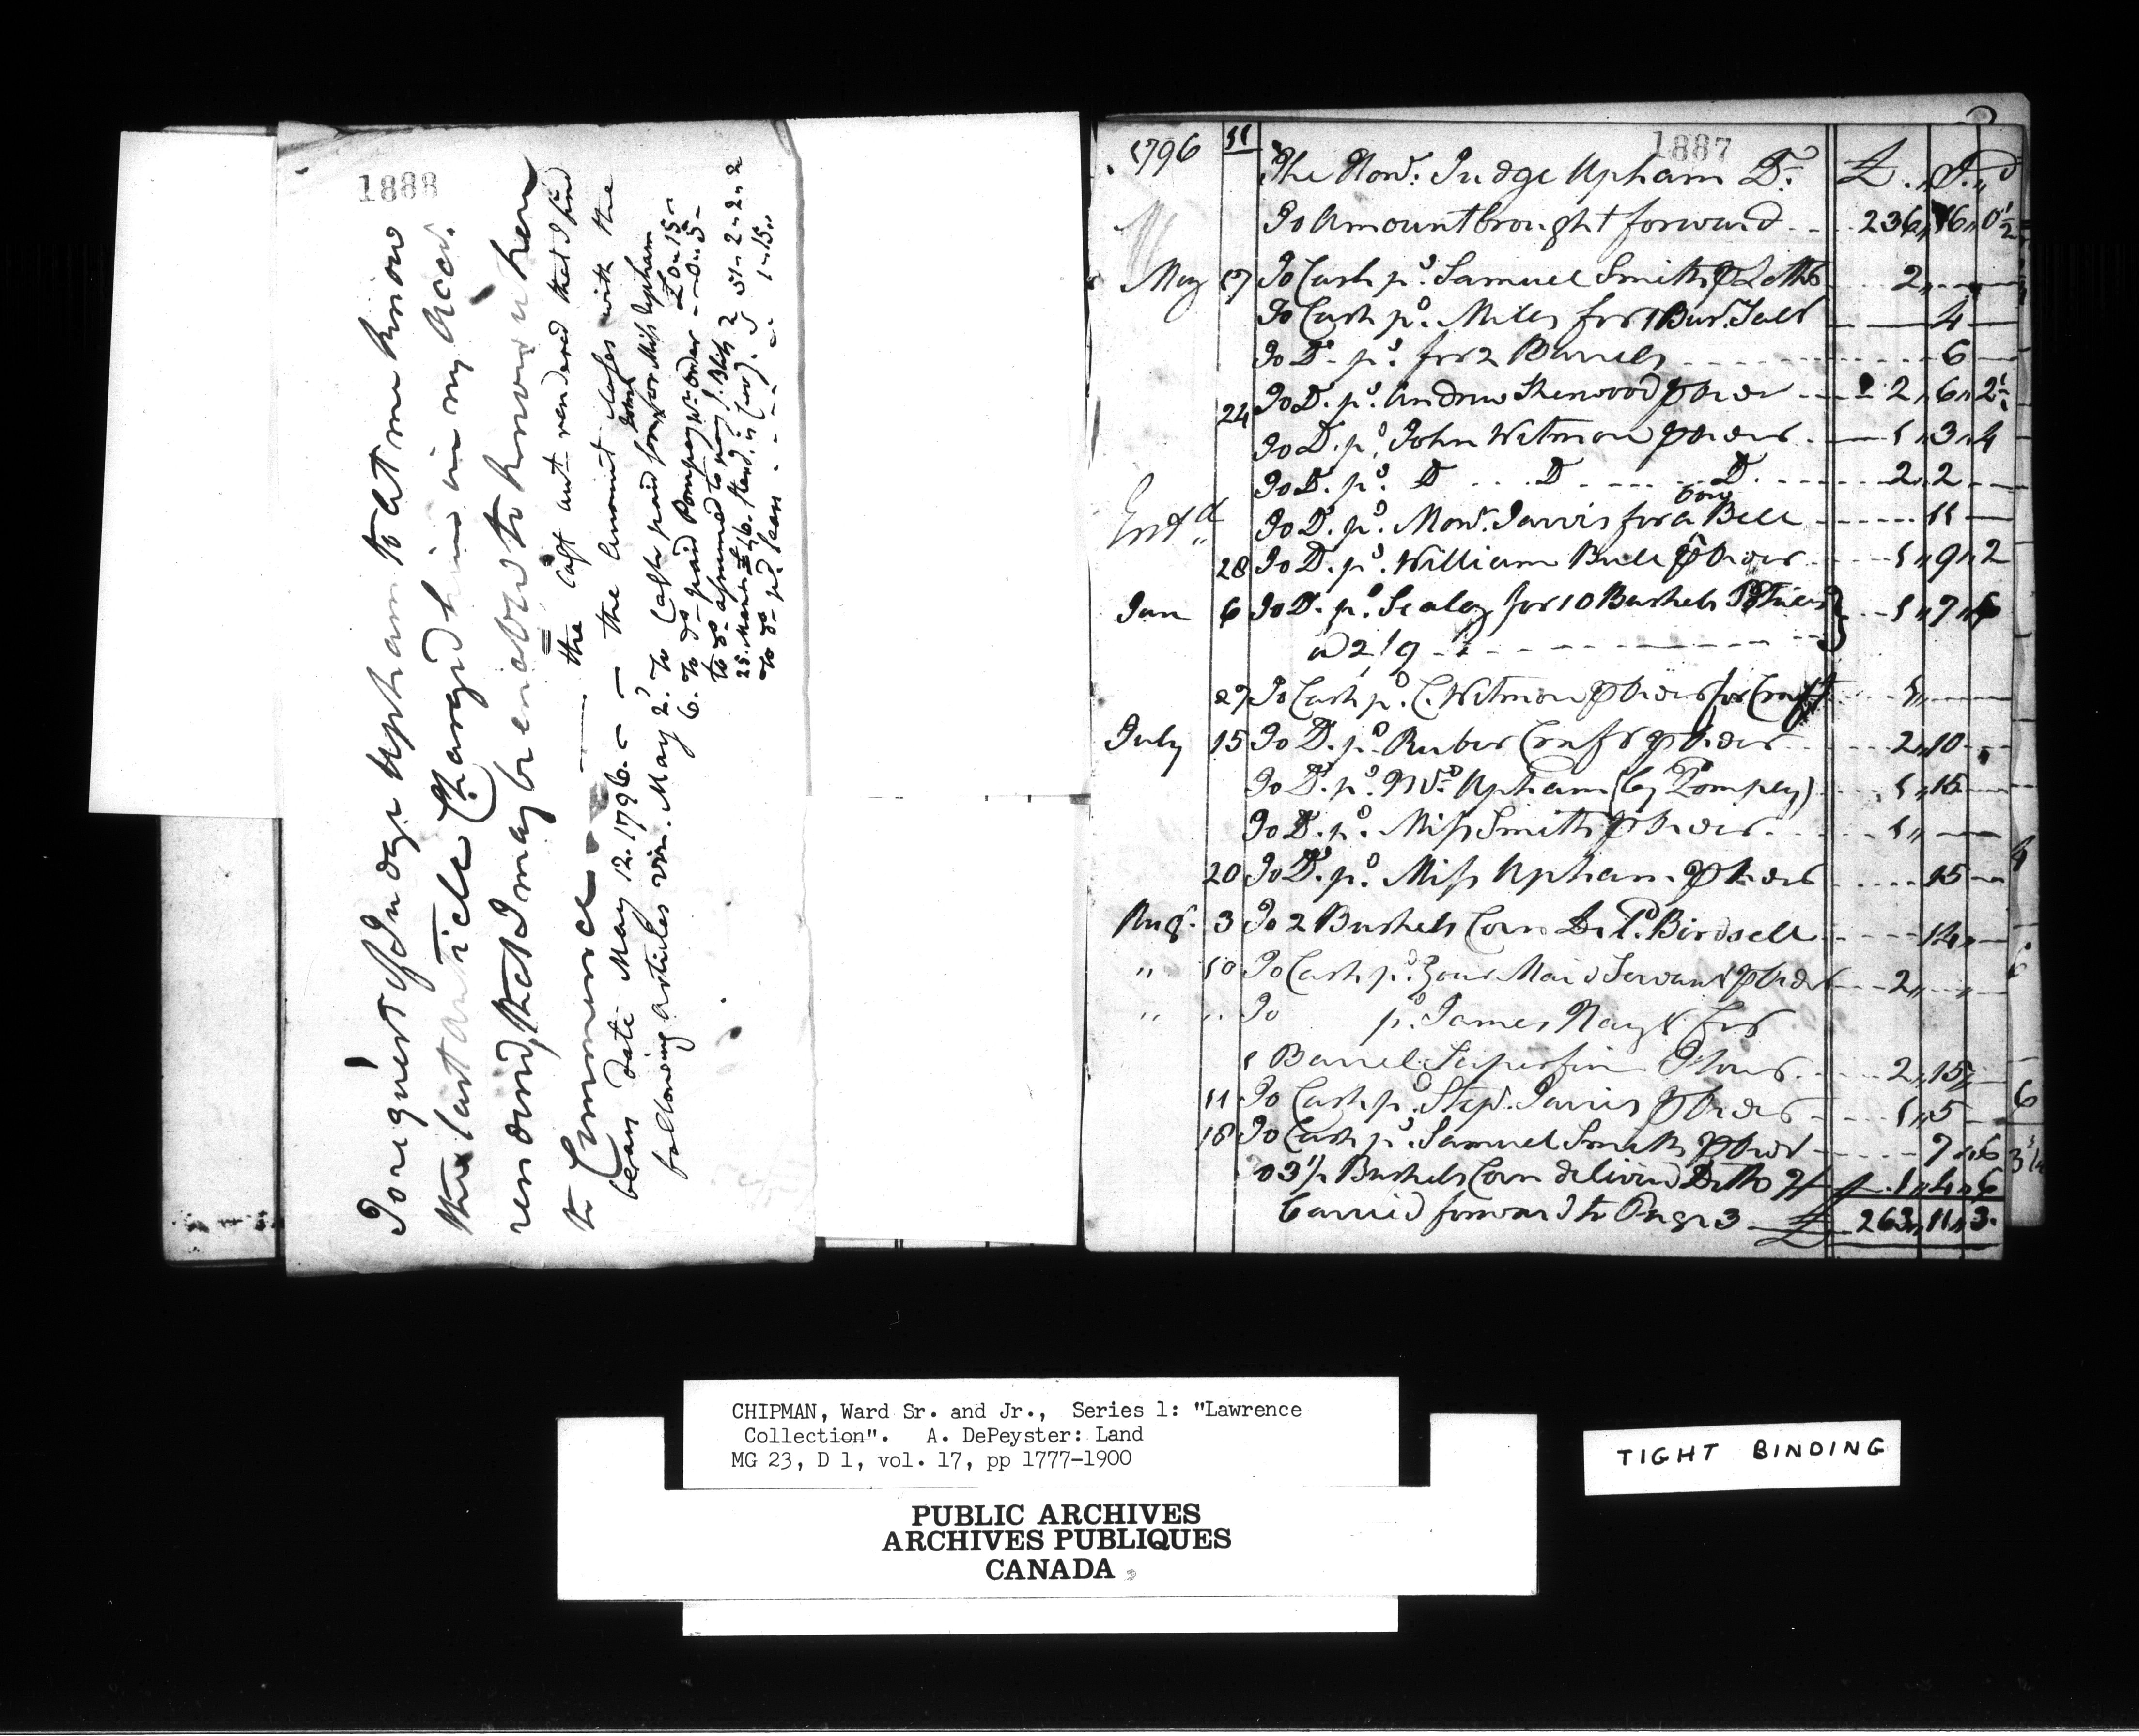 1888
To request of Judge Upham to let me know
the last article Charged him in my Acct.
rendered, that I may be enabled to know when
to Commence —
the last acct rendered that I find
bears date May 12. 1796. — the Amount tastes with the
following articles viz. May 2d. To Cash paid for Miss Upham £0..15..
6. To do. paid Pompey pr. order — 0..5..
to do. assumed to pay J. 2..2
25. March 16.
to do. pd. Sears 1..15..
1887
1796 11 The Honl. Judge Upham Dr. £ S. d
To Amount brought forward 236,,16,,0½
May 17 To Cash pd. Samuel Smith ⅌ Letter 2,,
To Cash pd. Miles for 1 Bus. Salt 4
To Do. pd. for 2 Barrels 6
24 To Do. pd. Andrew Sherwood ⅌ Order 2,,6,,2½
To Do. pd. John Witmon ⅌ Order 1,,3,,4
To Do. pd. Do Do Do. 2,,2
Entd. To Do. pd. Monr. Jarvis for a Cow Bell 11
28 To Do. pd. William Bull ⅌ Order 1,,9,,2
Jun 6 To Do. pd. Sealey for 10 Bushels
a 2/9 1,,7,,6
27 To Cash pd. C. Witmon ⅌ Order for Craft 1,,
July 15 To Do. pd. Ruber Craft ⅌ Order 2,,10
To Do. pd. Mrs. Upham (by Pompey) 1,,15
To Do. pd. Miss Smith ⅌ Order 1,,
20 To Do. pd. Miss Upham ⅌ Order 15
Aug. 3 To 2 Bushels Corn Dr. P. Birdsell 14,,
,, 10 To Cash pd. Your Maid Servant ⅌ Order 2,,
,, ,, To pd. James Hayt for
1 Barrel Superfine Flour 2,,15,,
11 To Cash pd. Stepn. Jarvis ⅌ Order 1,,5
18 To Cash pd. Samuel Smith ⅌ Order 7,,6
To 3½ Bushels Corn delivered Ditto 7/ 1,,4,,6
Carried forward to Page 3 £ 263,,11,,3.
CHIPMAN, Ward Sr. and Jr., Series 1: "Lawrence
Collection". A. DePeyster: Land
MG 23, D 1, vol. 17, pp 1777-1900
PUBLIC ARCHIVES
ARCHIVES PUBLIQUES
CANADA
TIGHT BINDING